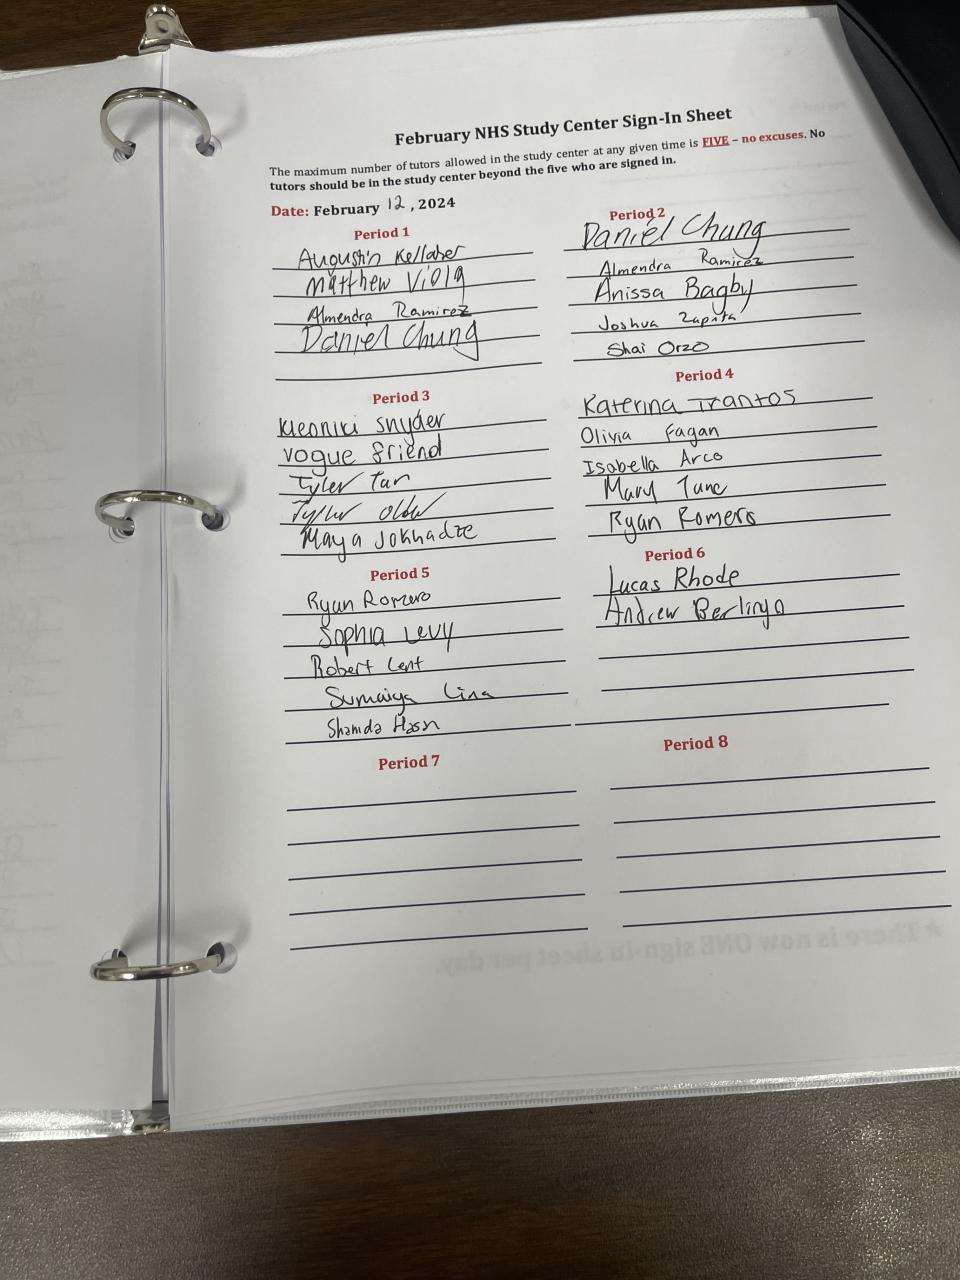 February NHS Study Center Sign-In Sheet
The maximum number of tutors allowed in the study center at any given time is FIVE – no excuses. No
tutors should be in the study center beyond the five who are signed in.
Date: February 12, 2024
Period 1
Augustin Kellaher
Matthew Viola
Almendra Ramirez
Daniel Chung
Period 2
Daniel Chung
Almendra Ramirez
Anissa Bagby
Joshua Zapata
Shai Orzo
Period 3
Kleoniki Snyder
Vogue Friend
Tyler
Tyler
Maya Jokhadze
Period 4
Katerina Trantos
Olivia Fagan
Isabella Arco
Ryan Romero
Period 5
Ryan Romero
Sophia Levy
Robert
Sumaiya
Period 6
Lucas Rhode
Andrew
Period 7
Period 8
★ There is now ONE sign-in sheet per day.